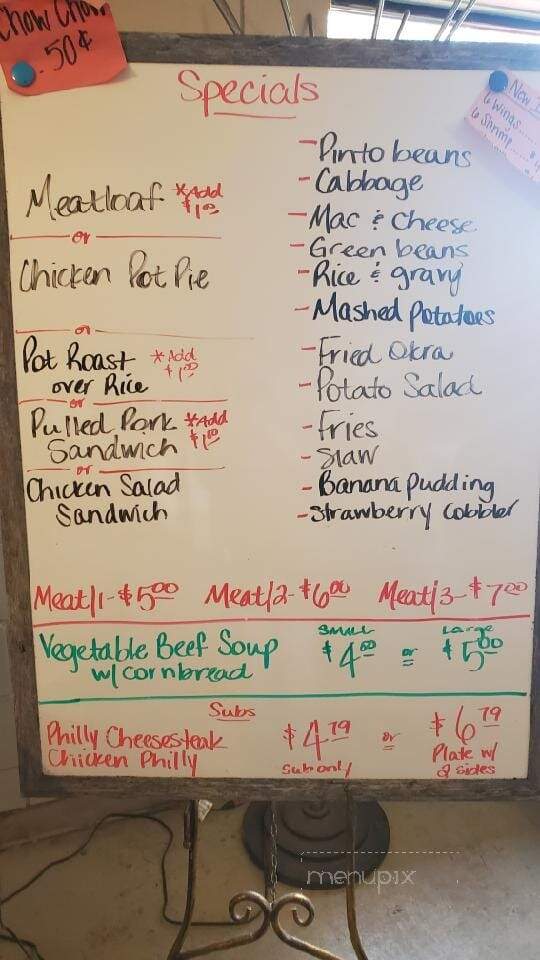 Chow Chow
.50¢
Specials
New I
6 Wings....
6 Shrimp....
Meatloaf *Add $1.00
or
Chicken Pot Pie
or
Pot Roast *Add $1.00
over Rice
or
Pulled Pork *Add $1.00
Sandwich
or
Chicken Salad
Sandwich
- Pinto beans
- Cabbage
- Mac & Cheese
- Green beans
- Rice & gravy
- Mashed Potatoes
- Fried Okra
- Potato Salad
- Fries
- Slaw
- Banana pudding
- Strawberry Cobbler
Meat/1-$5.00 Meat/2-$6.00 Meat/3-$7.00
Vegetable Beef Soup
w/ cornbread
Small $4.00 or Large $5.00
Subs
Philly Cheesesteak
Chiicken Philly
$4.79 Sub only or $6.79 Plate w/ 2 sides
menupix